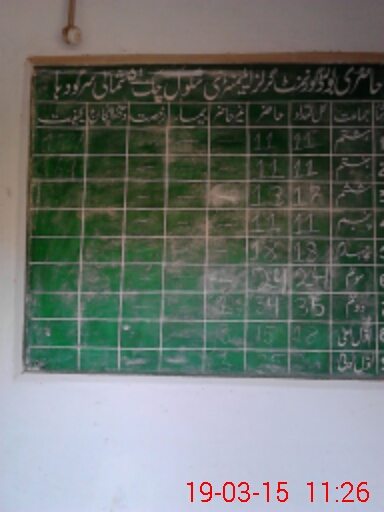 حاضری بورڈ گورنمنٹ گرلز ایلیمنٹری سکول چک شمالی سرگودہا
جماعت کل تعداد حاضر غیر حاضر بیمار رخصت
ہشتم 11 11
ہفتم 11 11
ششم 18 13
پنجم 11 11
چہارم 18 18
سوئم 24 24
دوئم 35 34
اول اعلیٰ 15
اول ادنیٰ
19-03-15 11:26